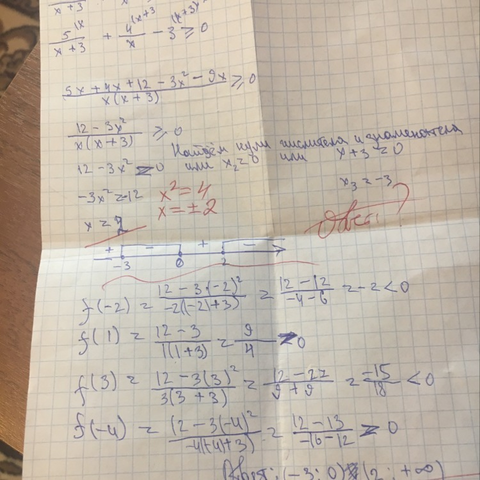 x+3
5\x / x+3 + 4\(x+3) / x − 3\(x+3)x ≥ 0
5x + 4x + 12 − 3x² − 9x / x(x+3) ≥ 0
12 − 3x² / x(x+3) ≥ 0
Найдём нули числителя и знаменателя
12 − 3x² = 0 или x₂ = 0 или x+3 = 0
−3x² = −12 x² = 4 x₃ = −3
x = 2 x = ±2 Ответ?
+ − + −
−3 0 2
f(−2) = 12 − 3·(−2)² / −2((−2)+3) = 12 − 12 / −4−6 = −2 < 0
f(1) = 12 − 3 / 1(1+3) = 9 / 4 > 0
f(3) = 12 − 3(3)² / 3(3+3) = 12 − 27 / 9+9 = −15 / 18 < 0
f(−4) = 12 − 3(−4)² / −4(−4)+3) = 12 − 13 / −16−12 > 0
Ответ: (−3; 0) (2; +∞)